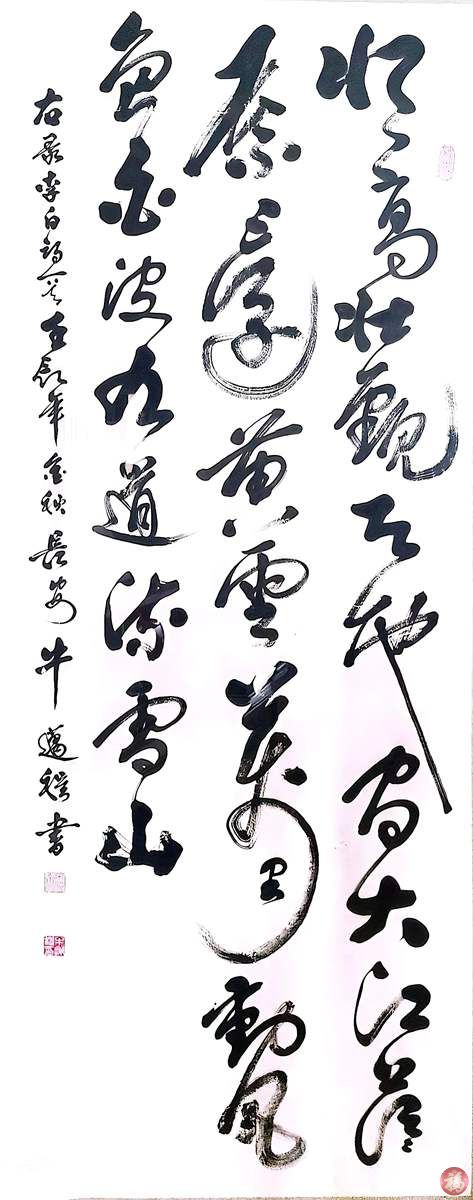 登高壮觀天地間大江茫〻
去不還黄雲萬里動風
色白波九道流雪山
右录李白詩一首壬辰年金秋長安牛書
福